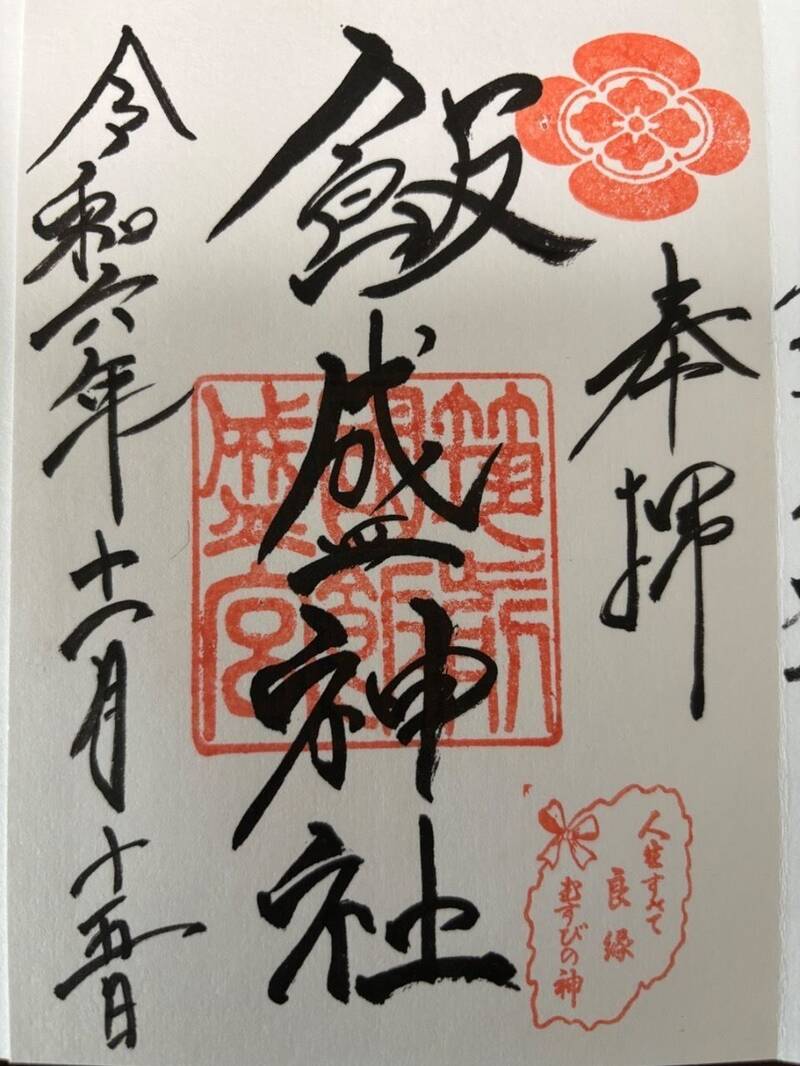 奉拝
飯盛神社
令和六年十一月十五日
筑前
國飯
盛宮
人生すべて
良縁
むすびの神